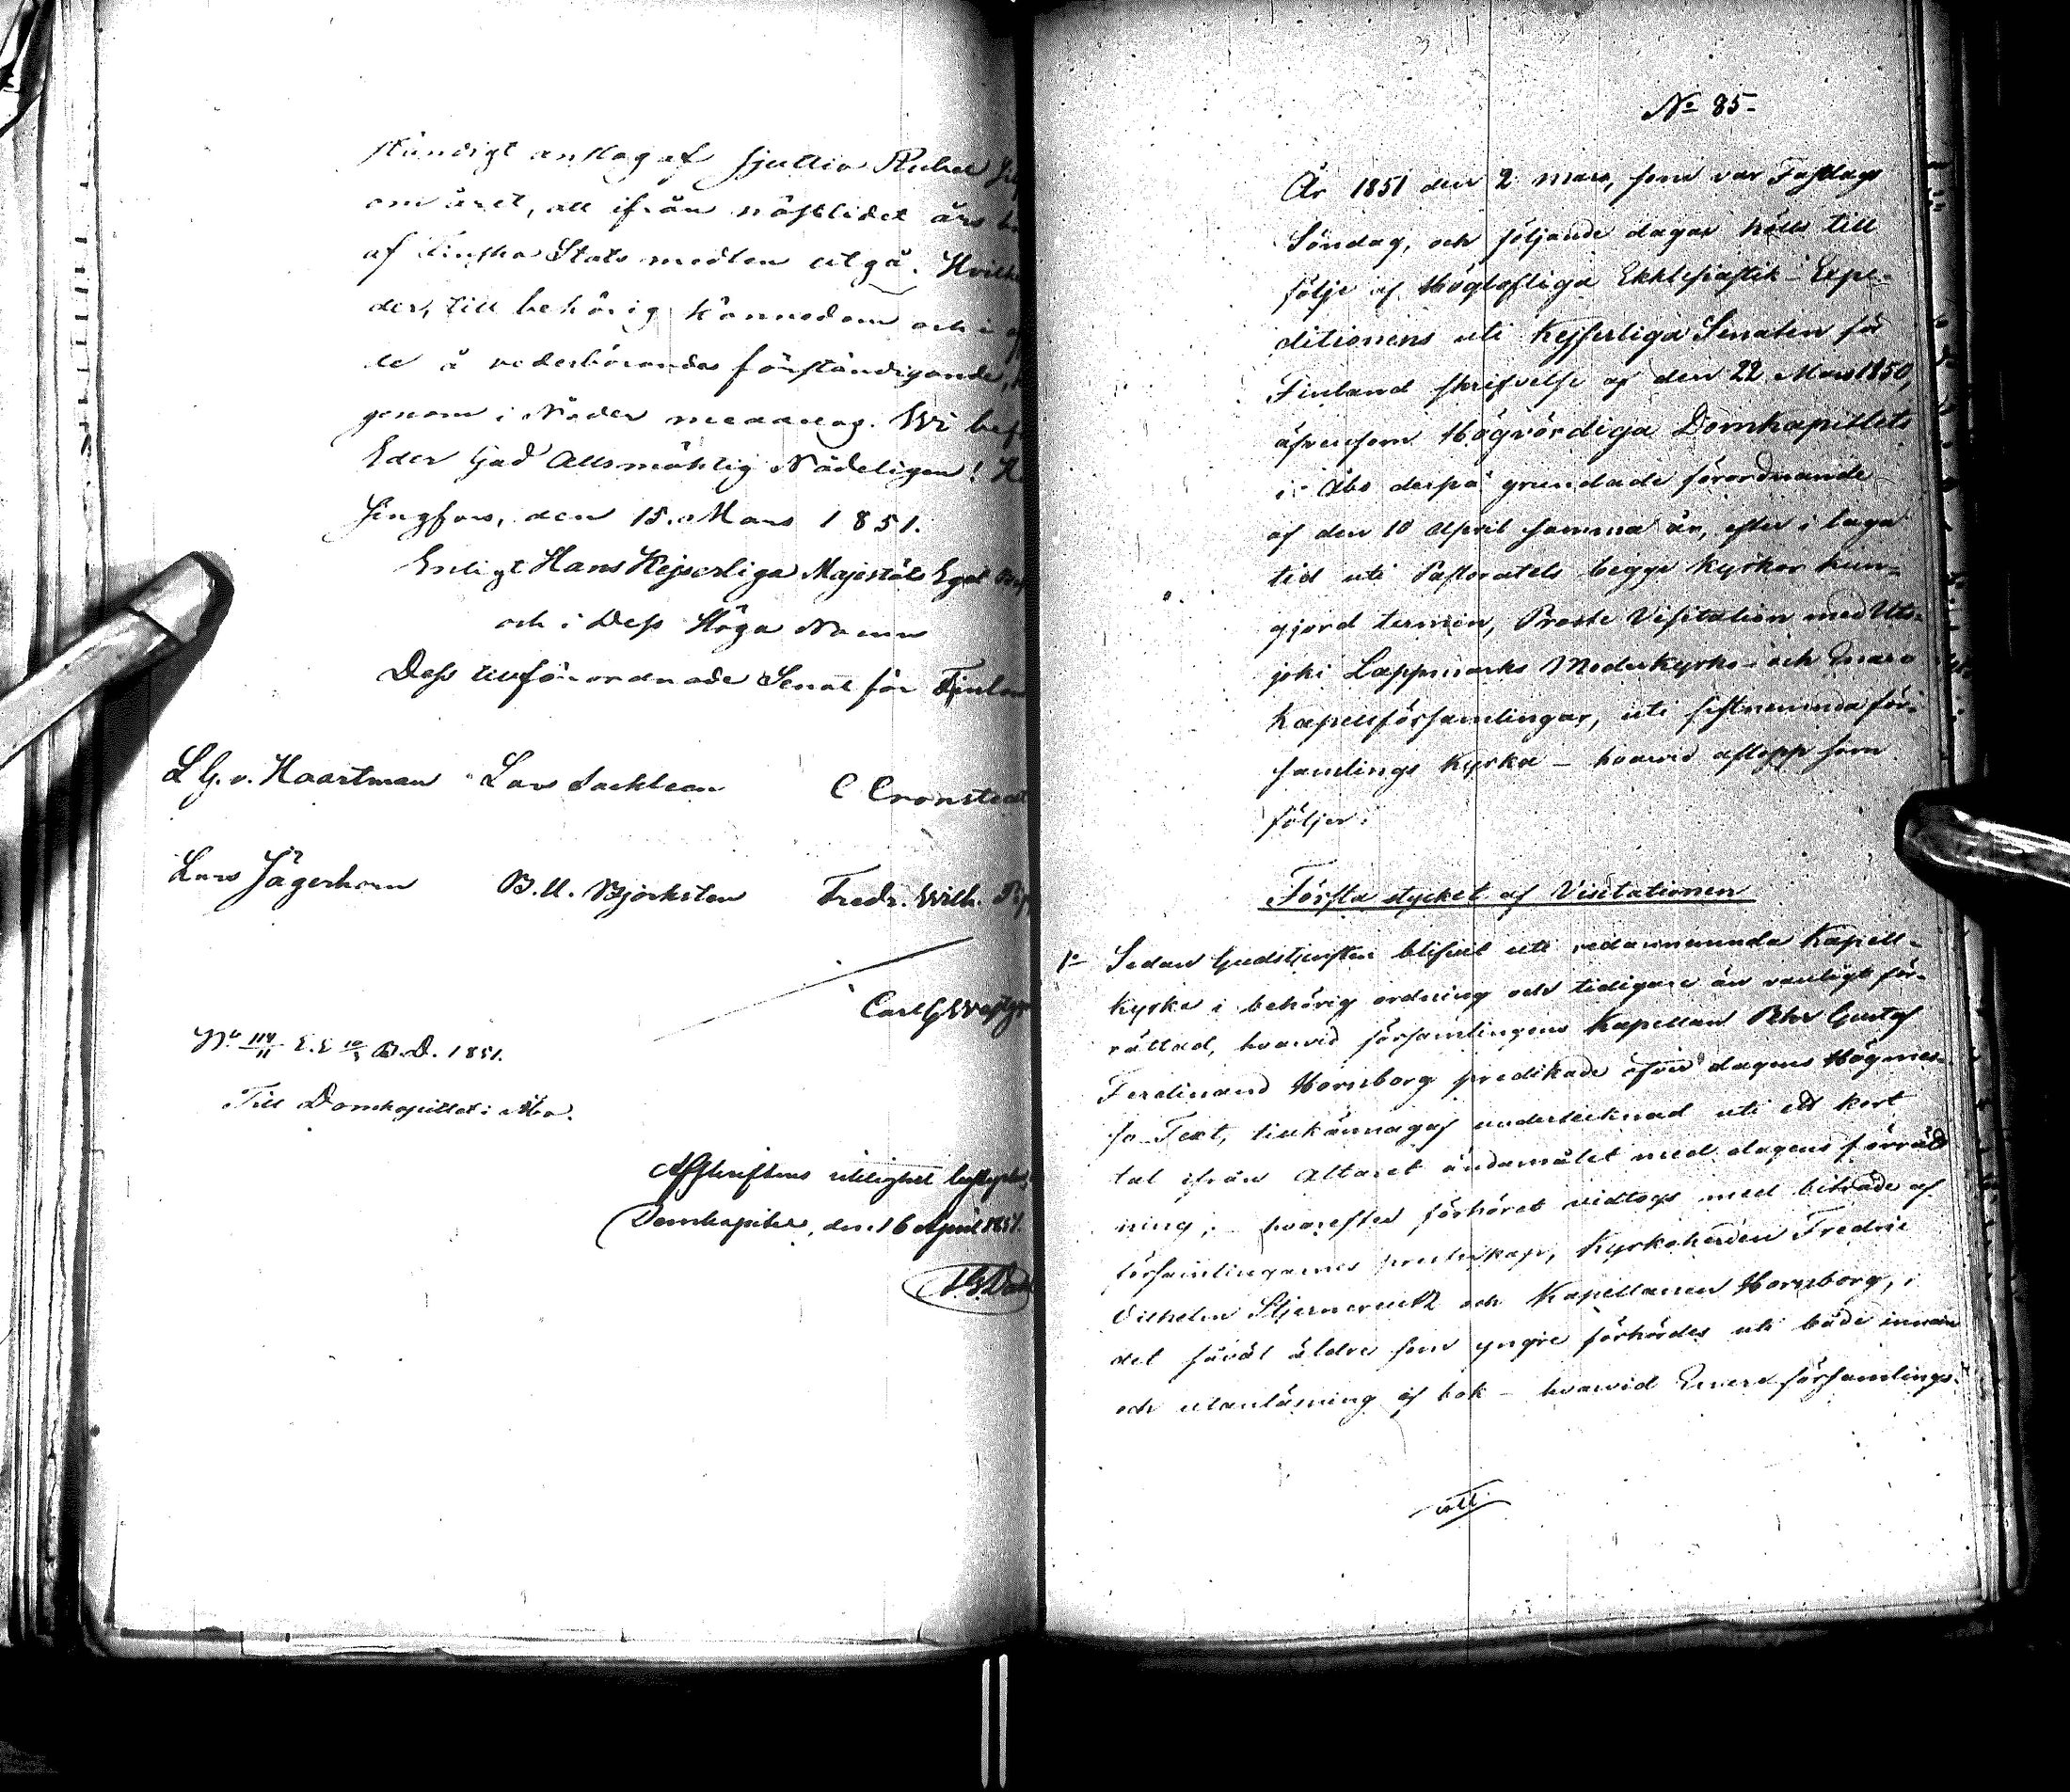 ständigt anslag af sjuttio Rubel
om året, att ifrån nästlidet års
af Finska Stats medlen utgå.
der, till behörig kännedom och i
de å vederbörandes förständigande,
genom i Nåder meddelas. Wi
Eder Gud Allsmäktig Nådeligen!
singfors, den 15. Mars 1851.
Enligt Hans Kejserliga Majestäts Eget
och i Dess Höga Namn
Dess tillförordnade Senat för
L G. v. Haartman Lars Sackleen C Cronstedt
Lars Jägerhorn B. U. Björksten Fredr. Wilh.
Carl G
No 114/11 E. E 10/5 B. D. 1851.
Till Domkapitlet i Åbo.
Afskriftens riktighet
Domkapitel, den 16 April 1851.
No 85.
År 1851 den 2 Mars, som var Fastlags
Söndag, och följande dagar hölls till
följe af Höglofliga Ekklesiastik-Expe-
ditionens uti Kejserliga Senaten för
Finland skrifvelse af den 22 Mars 1850,
äfvensom Högvördiga Domkapitlets
i Åbo derpå grundade förordnande
af den 10 April samma år, efter i laga
tid uti Pastoratets begge Kyrkor kun-
gjord termin, Proste Visitation med Uts-
joki Lappmarks Moderkyrko- och Enare
Kapellförsamlingar, uti sistnemnda för-
samlings Kyrka – hvarvid aflopp som
följer:
Första stycket af Visitationen
1o Sedan Gudstjensten blifvit uti redannemnda Kapell-
kyrka i behörig ordning och tidigare än vanligt för-
rättad, hvarvid församlingens Kapellan Pehr Gustaf
Ferdinand Hornborg predikade öfver dagens Högmes-
so Text, tillkännagaf undertecknad uti ett kort
tal ifrån Altaret ändamålet med dagens förrätt
ning; hvarefter förhöret vidtogs med biträde af
församlingarnes presterskap, Kyrkoherden Fredric
Vilhelm Stjerncreutz och Kapellanen Hornborg, i
det såväl äldre som yngre förhördes uti både innan
och utanläsning af bok – hvarvid Enare församlings-
att